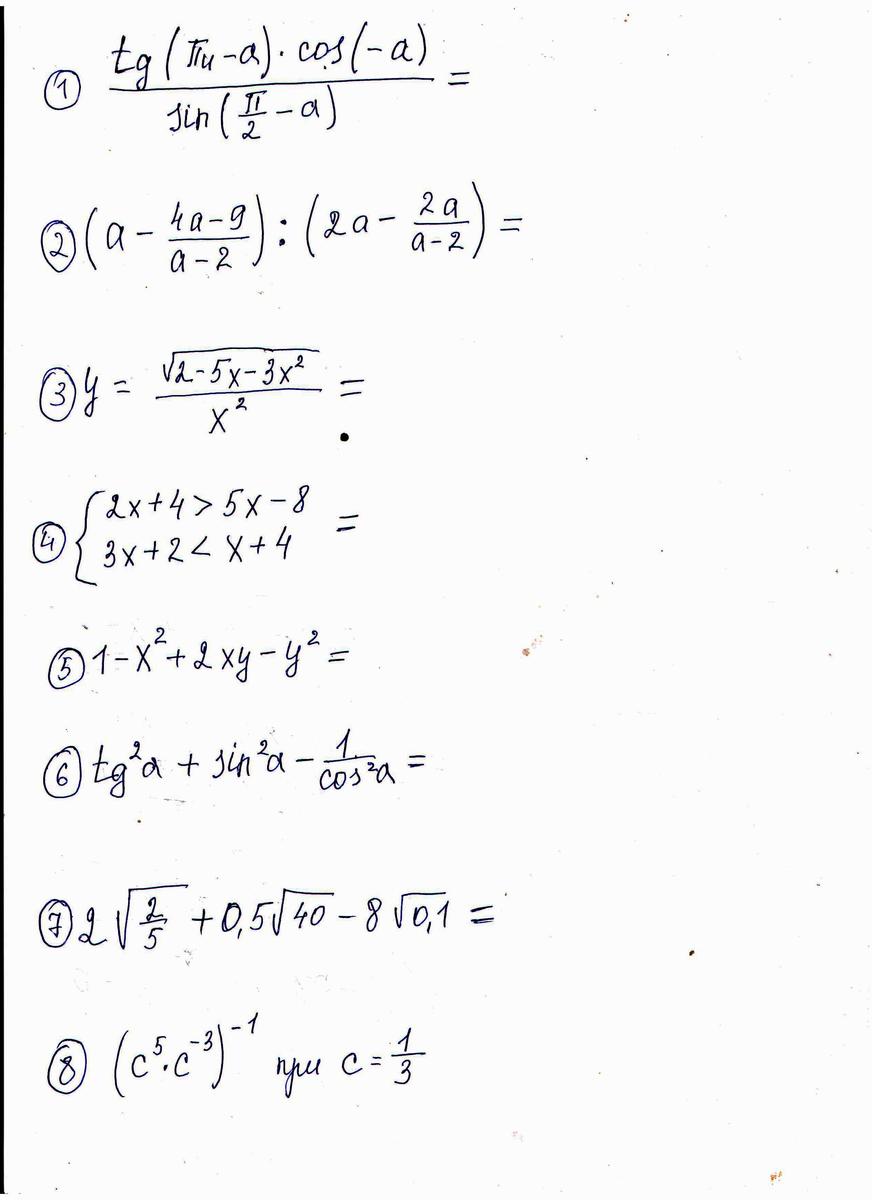 ① tg(πи-a)·cos(-a) / sin(π/2 - a) =
② (a - (4a-9)/(a-2)) : (2a - 2a/(a-2)) =
③ y = √(2-5x-3x²) / x² =
④ { 2x+4 > 5x-8
3x+2 < x+4 =
⑤ 1-x²+2xy-y² =
⑥ tg²a + sin²a - 1/cos²a =
⑦ 2√(2/5) + 0,5√40 - 8√0,1 =
⑧ (c⁵·c⁻³)⁻¹ при c = 1/3